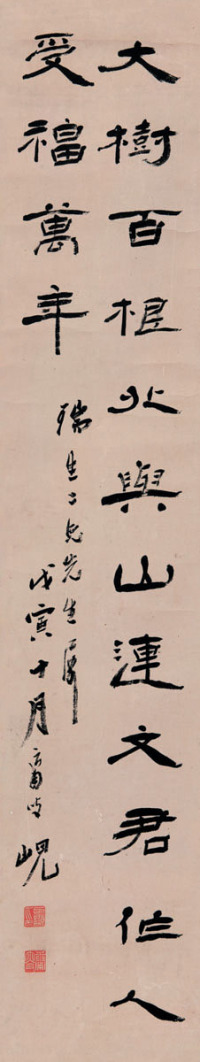 大樹百根北與山連文君作人
受福萬年
瑞生二兄先生屬
戊寅十月 峴